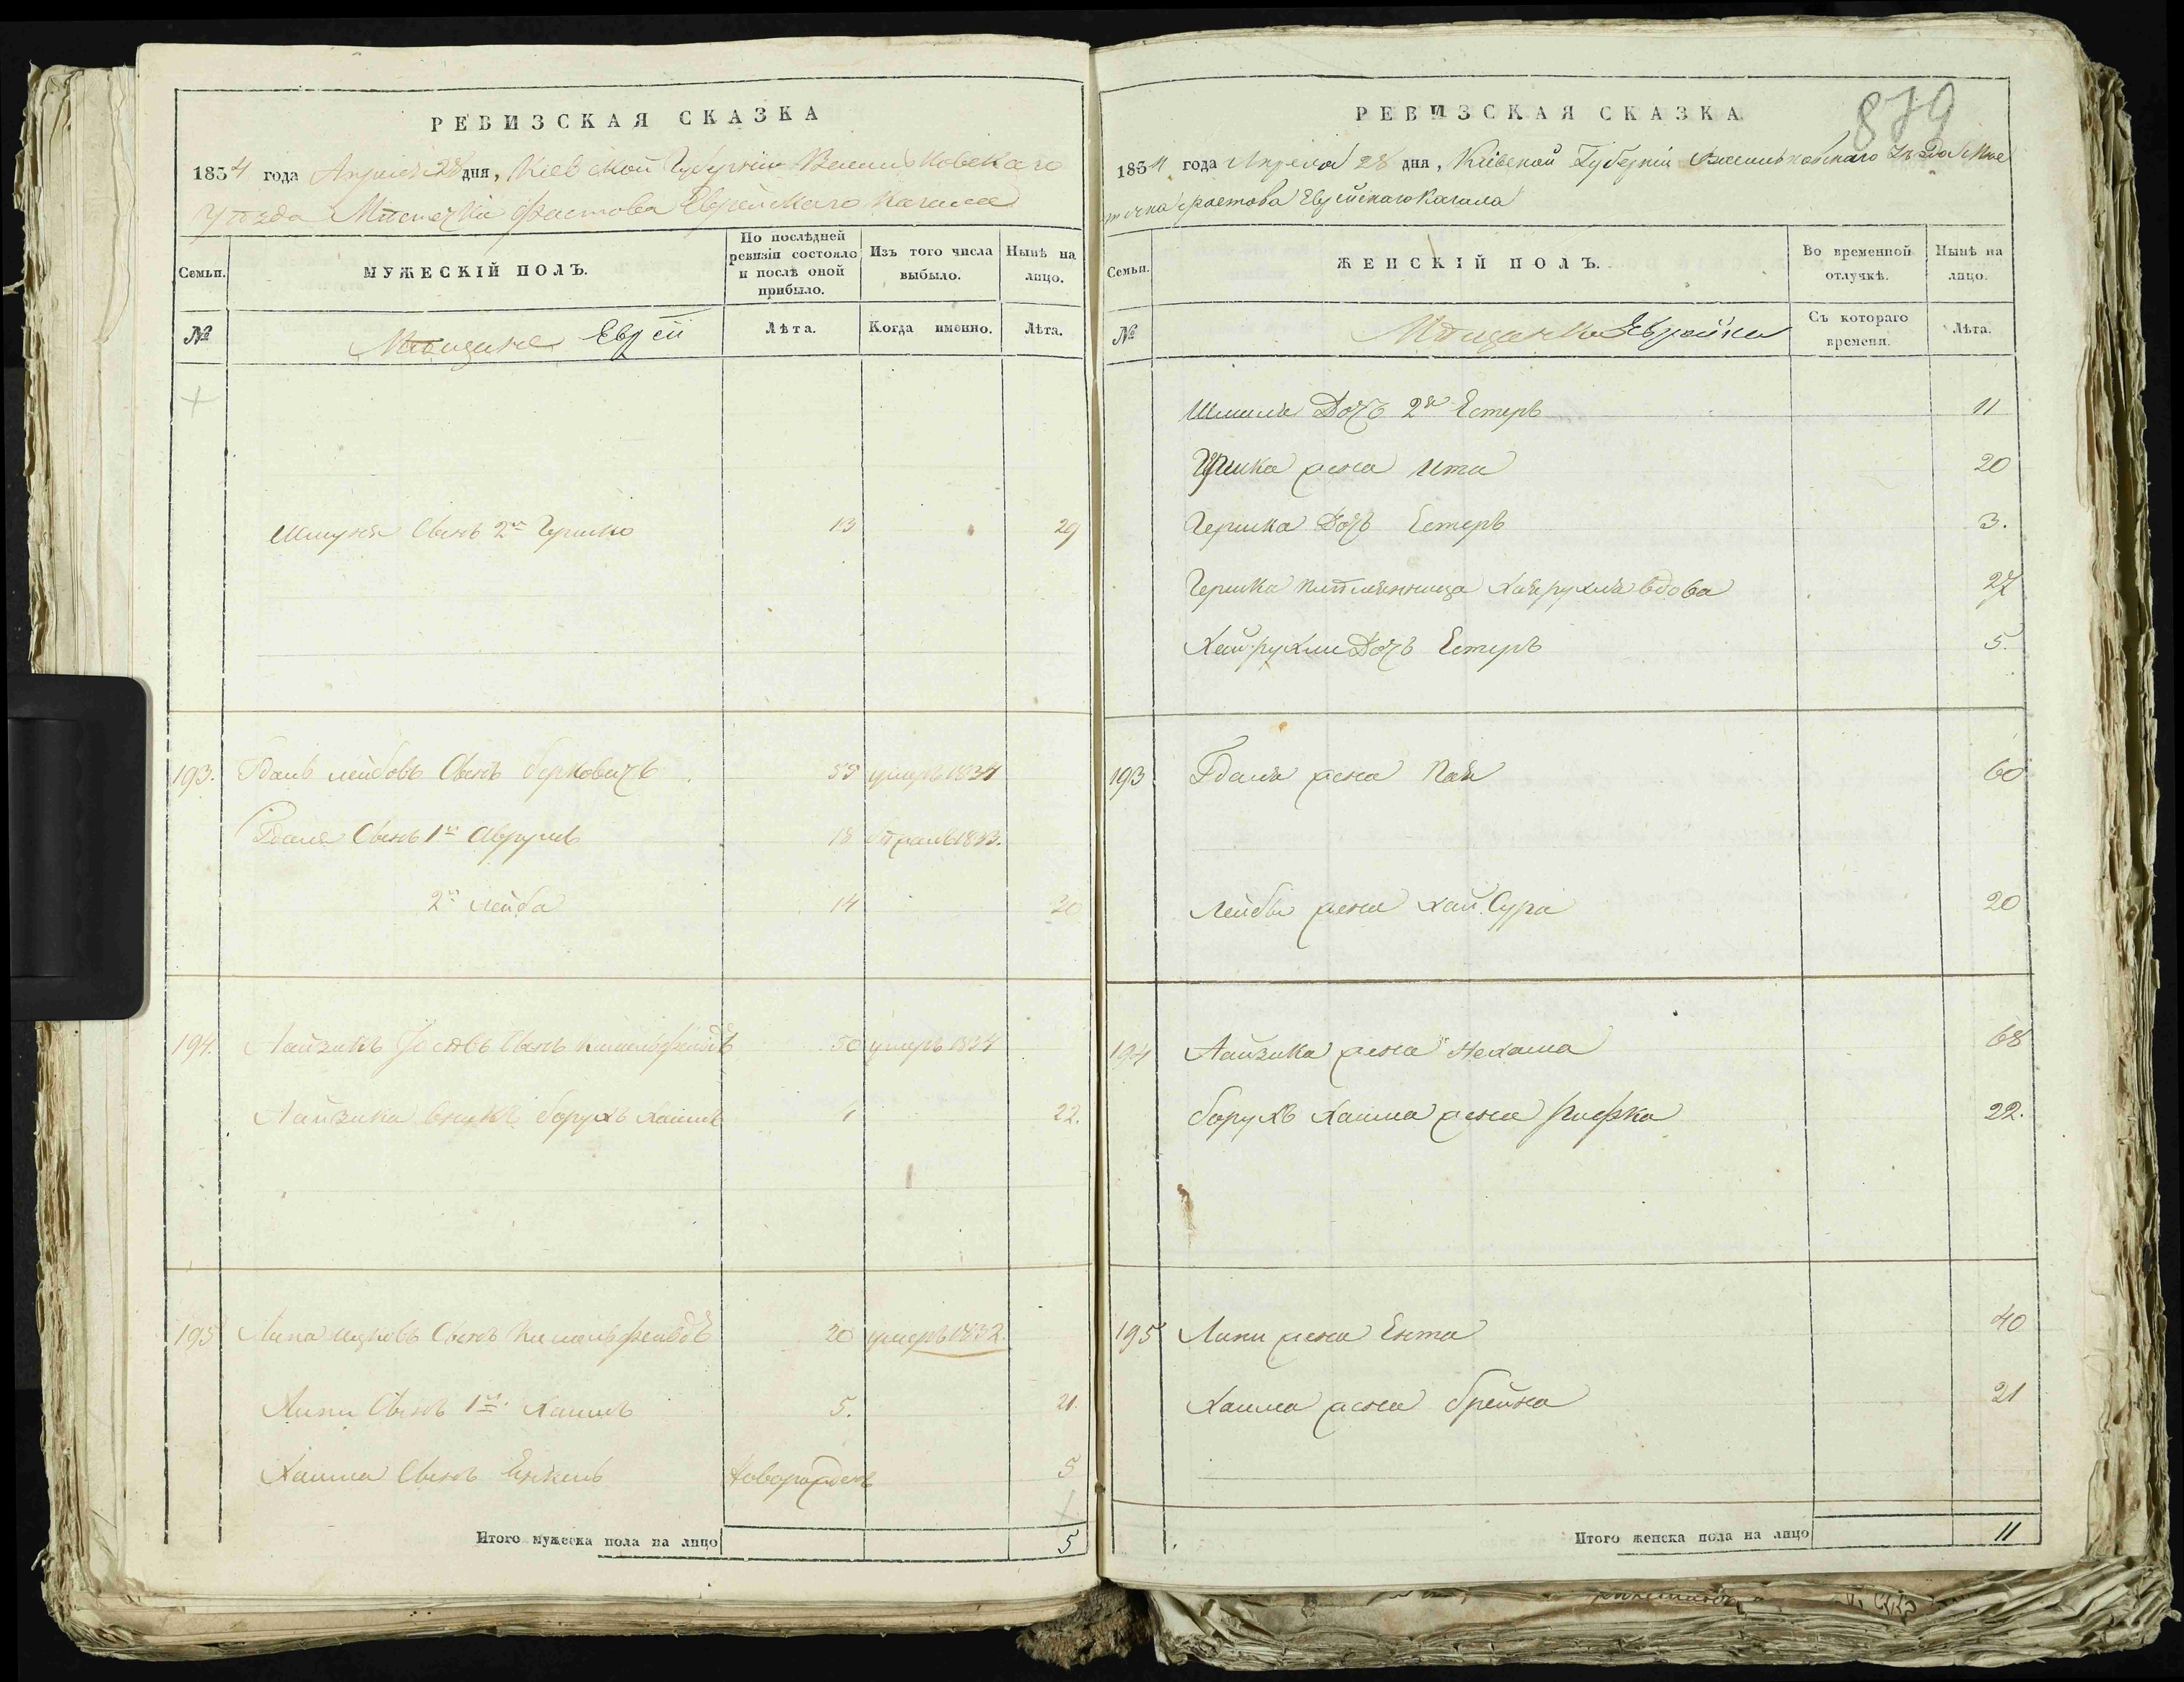 РЕВИЗСКАЯ СКАЗКА
1854 года Апреля 28 дня, Кіевской Губерніи Васильковскаго
Уѣзда Мѣстечка Фастова Еврейскаго Кагала
Семьи.
МУЖЕСКІЙ ПОЛЪ.
По послѣдней ревизіи состояло и послѣ оной прибыло.
Изъ того числа выбыло.
Нынѣ на лицо.
№
Мѣщане Евреи
Лѣта.
Когда именно.
Лѣта.
Сынъ 2й Гершко 13 29
193. Гдаль Лейбовъ Сынъ Берковичъ 55 умеръ 1834
Гдаля Сынъ 1й Аврумъ 18 1833.
2й Лейба 14 20
194. Лайзикъ Сынъ 50 умеръ 1834
Лайзика внукъ Борухъ Хаимъ 6 22.
195 Липа Ицковъ Сынъ 20 умеръ 1832.
Липи Сынъ 1й Хаимъ 5. 21.
Хаима Сынъ Янкель Новорожденъ 5
Итого мужеска пола на лицо 5
879
РЕВИЗСКАЯ СКАЗКА
1854 года Апреля 28 дня, Кіевской Губерніи Васильковскаго Уѣзда Мѣс
течка Фастова Еврейскаго Кагала
Семьи.
ЖЕНСКІЙ ПОЛЪ.
Во временной отлучкѣ.
Нынѣ на лицо.
№
Мѣщанки Еврейки
Съ котораго времени.
Лѣта.
Шмиля Дочь 2я Естеръ 11
жена Ита 20
Гершка Дочь Естеръ 3.
Гершка племянница Хайрухля вдова 27
Хайрухли Дочь Естеръ 5.
193 Гдаля жена Пая 60
Лейбы жена Хая Сура 20
194 Лайзика жена Нехама 68
Борухъ Хаима жена Рифка 22.
195 Липи жена Ента 40
Хаима жена Брейна 21
Итого женска пола на лицо 11